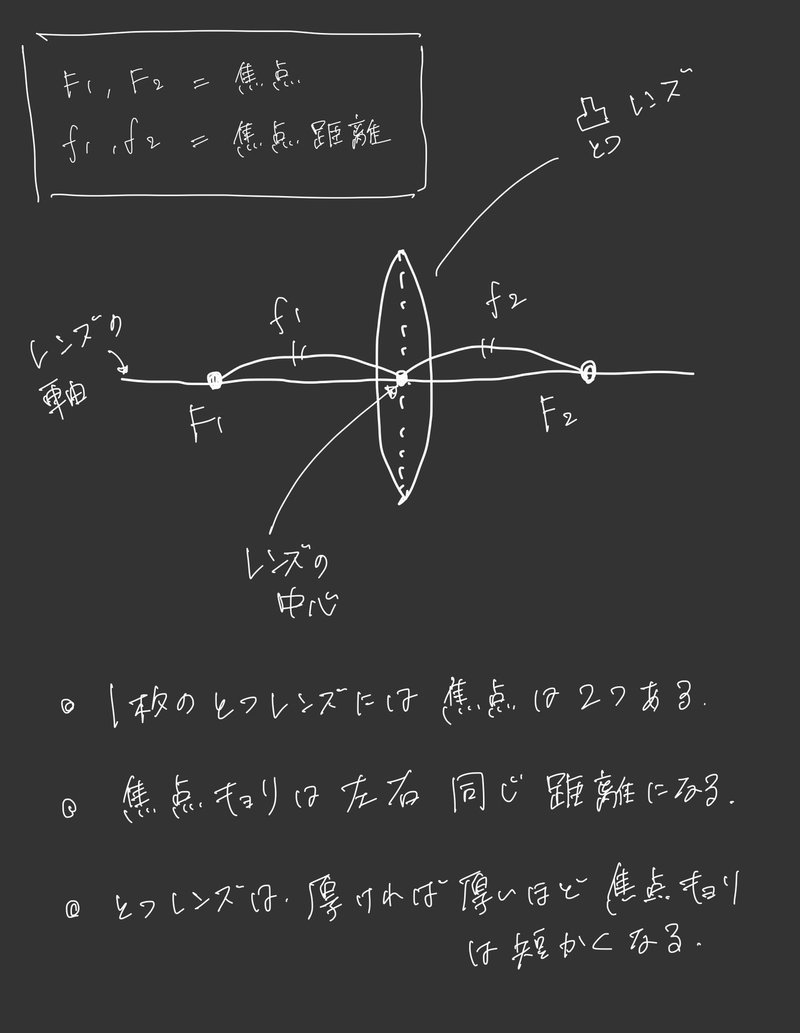 F1, F2 = 焦点
f1, f2 = 焦点距離
凸レンズ
とつ
f1
f2
レンズの
軸
F1
F2
レンズの
中心
1枚のとつレンズには焦点は2つある.
焦点キョリは左右同じ距離になる.
とつレンズは、厚ければ厚いほど焦点キョリ
は短かくなる.